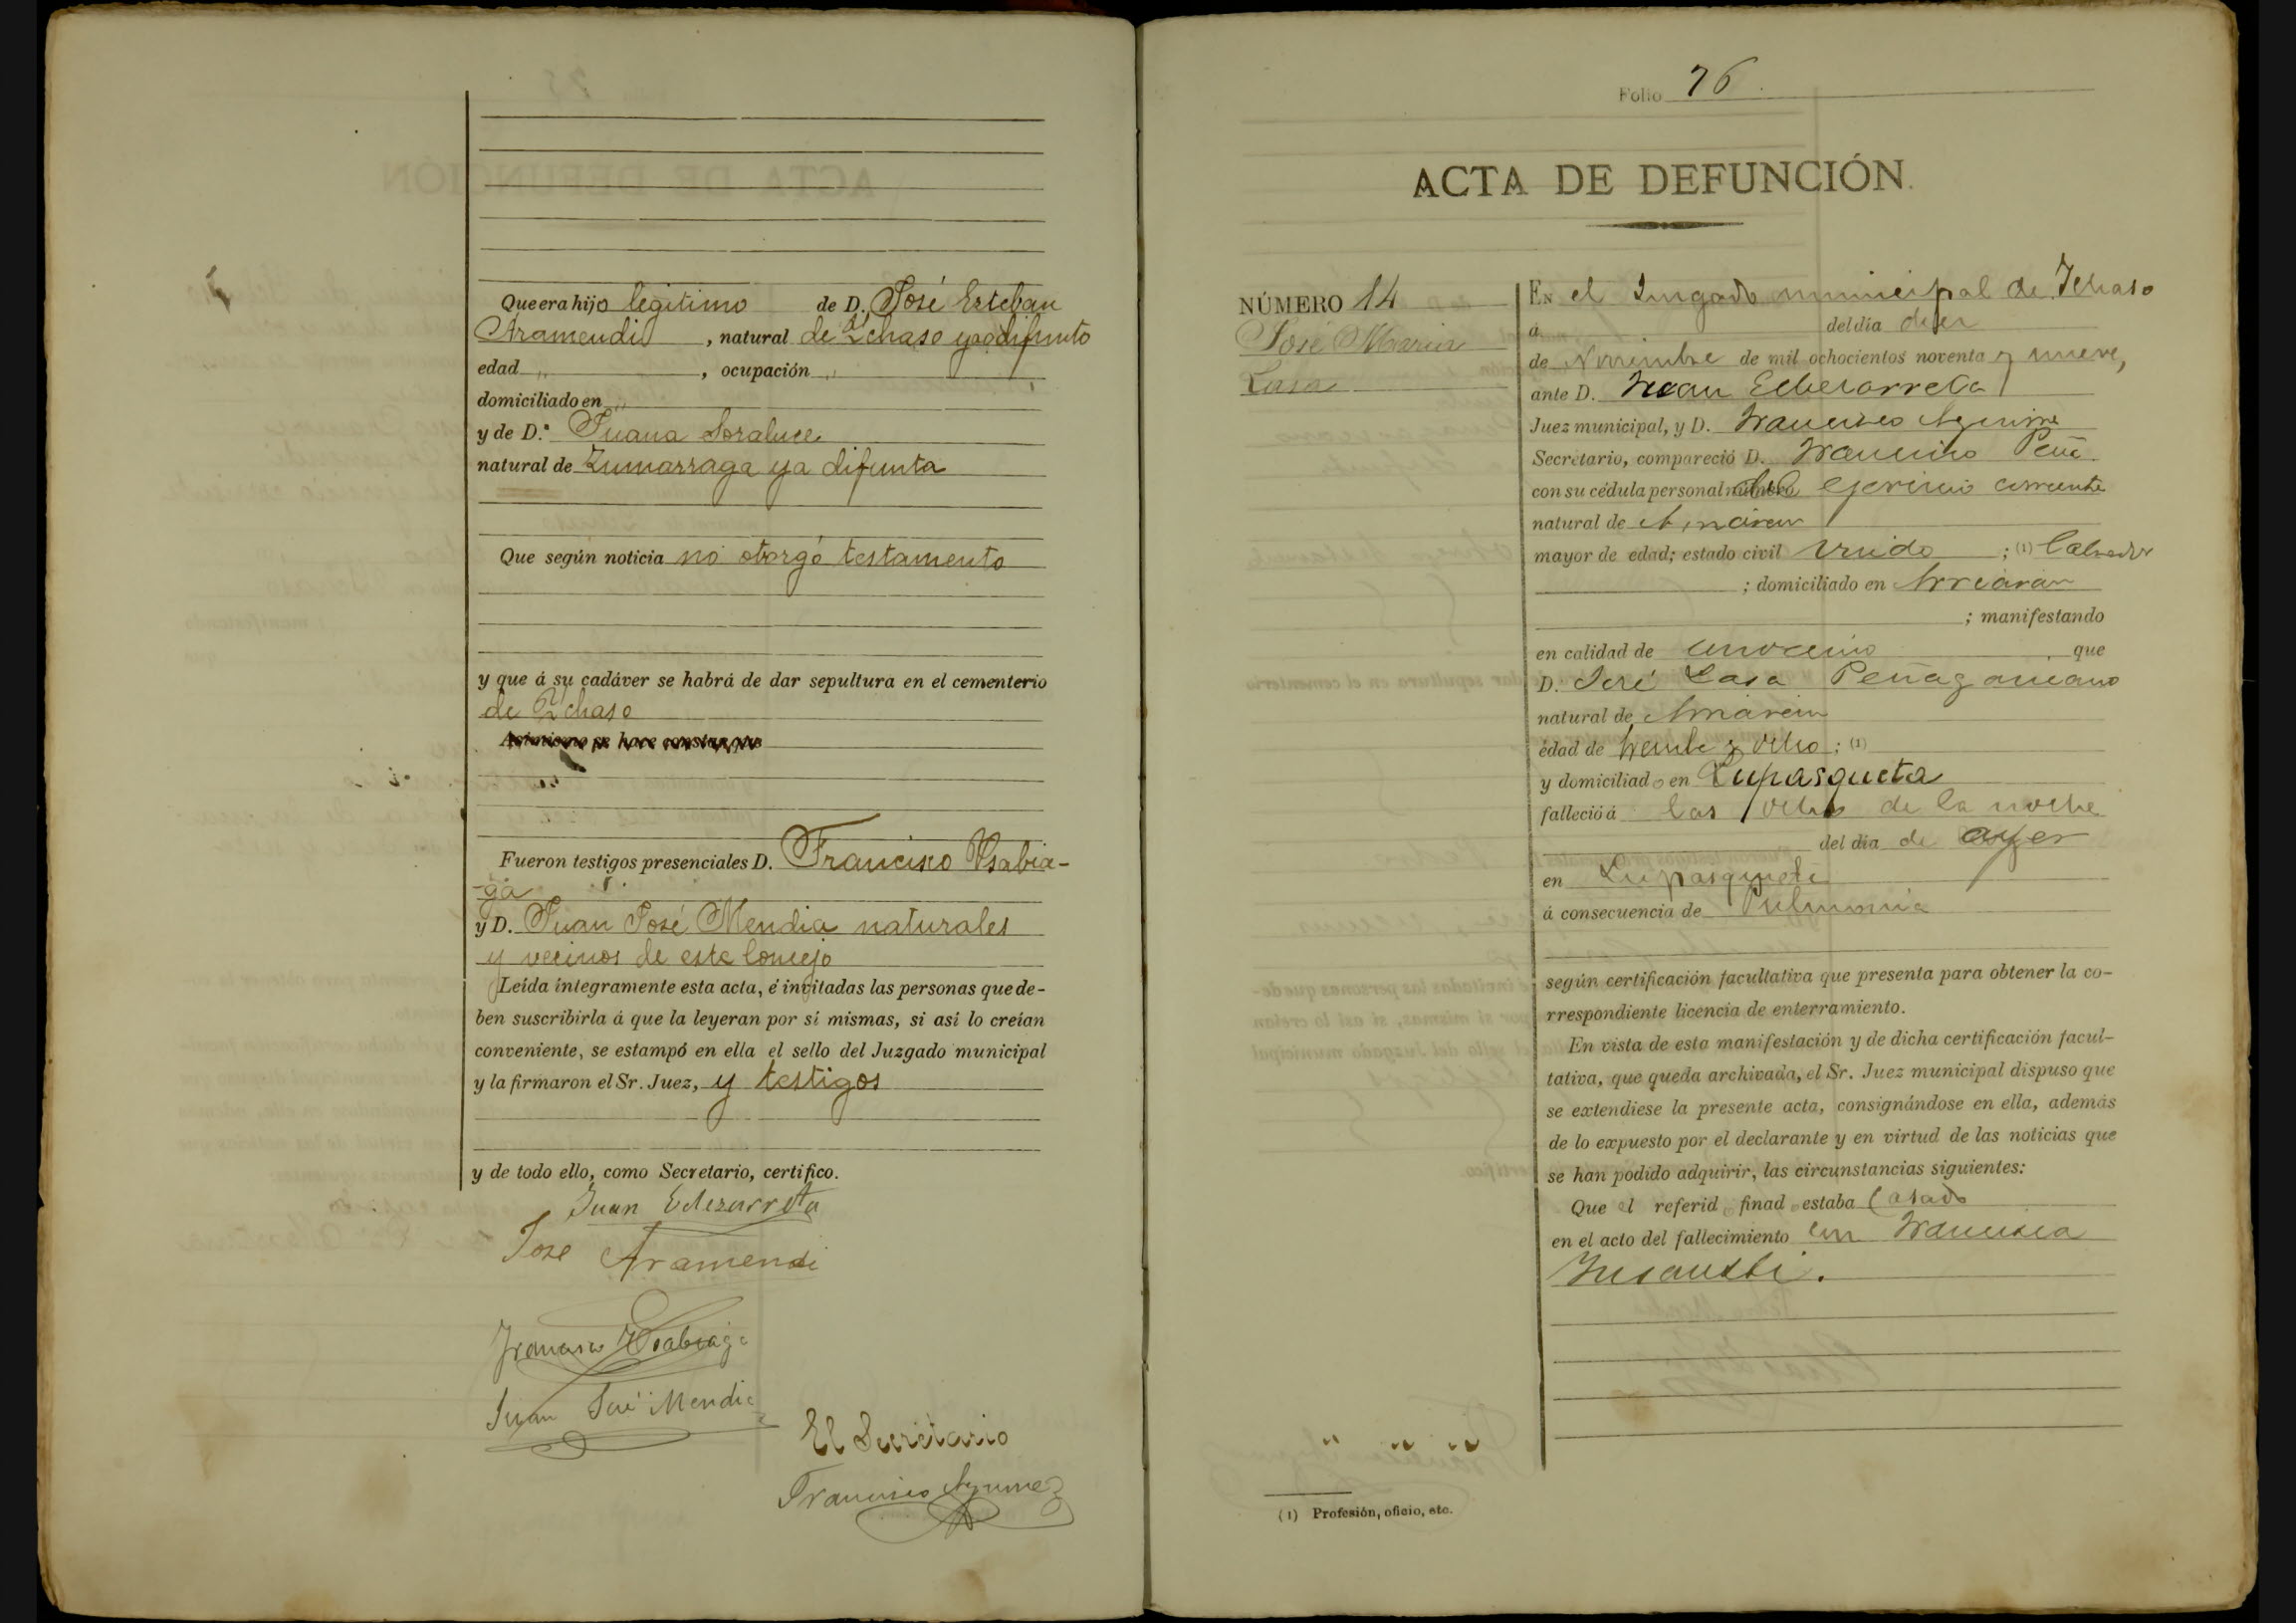 Que era hijo legitimo de D. José Esteban
Aramendi, natural de Ychaso ya difunto
edad „, ocupación „
domiciliado en „
y de D.ª Juana Soraluce
natural de Zumarraga ya difunta
Que según noticia no otorgó testamento
y que á su cadáver se habrá de dar sepultura en el cementerio
de Ychaso
Fueron testigos presenciales D. Francisco Ysabia-
-ga
y D. Juan José Mendia naturales
y vecinos de este Concejo
Leída íntegramente esta acta, é invitadas las personas que de-
ben suscribirla á que la leyeran por sí mismas, si así lo creían
conveniente, se estampó en ella el sello del Juzgado municipal
y la firmaron el Sr. Juez, y testigos
y de todo ello, como Secretario, certifico.
Juan Echezarreta
Jose Aramendi
Francisco Ysabiaga
Juan José Mendia
El Secretario
Francisco Aguirre
Folio 76
ACTA DE DEFUNCIÓN.
NÚMERO 14
José Maria
Lasa
EN el Jusgado municipal de Ichaso
á del día diez
de Noviembre de mil ochocientos noventa y nueve,
ante D. Juan Echezarreta
Juez municipal, y D. Francisco Aguirre
Secretario, compareció D. Francisco Peña
con su cédula personal del ejercicio corriente
natural de
mayor de edad; estado civil Viudo; (1) Labrador
; domiciliado en Arriaran
; manifestando
en calidad de que
D. José Lasa Peñagaricano
natural de
edad de treinta y ocho; (1)
y domiciliado en Lupasqueta
falleció á las ocho de la noche
del día de ayer
en Lupasqueta
á consecuencia de Pulmonia
según certificación facultativa que presenta para obtener la co-
rrespondiente licencia de enterramiento.
En vista de esta manifestación y de dicha certificación facul-
tativa, que queda archivada, el Sr. Juez municipal dispuso que
se extendiese la presente acta, consignándose en ella, además
de lo expuesto por el declarante y en virtud de las noticias que
se han podido adquirir, las circunstancias siguientes:
Que el referido finado estaba Casado
en el acto del fallecimiento con Francisca
Ynsausti.
(1) Profesión, oficio, etc.